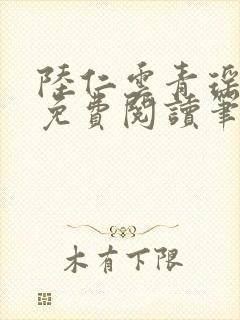 陸仁雲青瑤
免費閱讀筆
木有下限